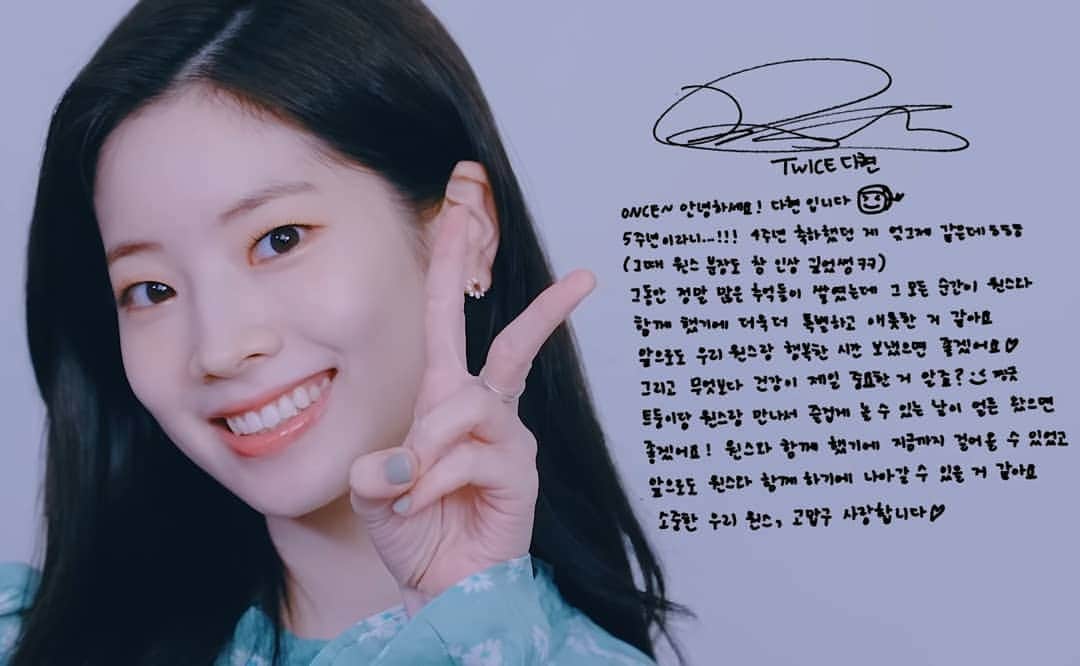 TWICE 다현
ONCE~ 안녕하세요! 다현입니다
5주년이라니...!!! 4주년 축하했던 게 엊그제 같은데ㅎㅎㅎ
(그때 원스 분장도 참 인상 깊었썽ㅋㅋ)
그동안 정말 많은 추억들이 쌓였는데 그 모든 순간이 원스와
함께 했기에 더욱더 특별하고 애틋한 거 같아요
앞으로도 우리 원스랑 행복한 시간 보냈으면 좋겠어요♡
그리고 무엇보다 건강이 제일 중요한 거 알죠?
트둥이랑 원스랑 만나서 즐겁게 놀 수 있는 날이 얼른 왔으면
좋겠어요! 원스와 함께 했기에 지금까지 걸어올 수 있었고
앞으로도 원스와 함께 하기에 나아갈 수 있을 거 같아요
소중한 우리 원스, 고맙구 사랑합니다♡